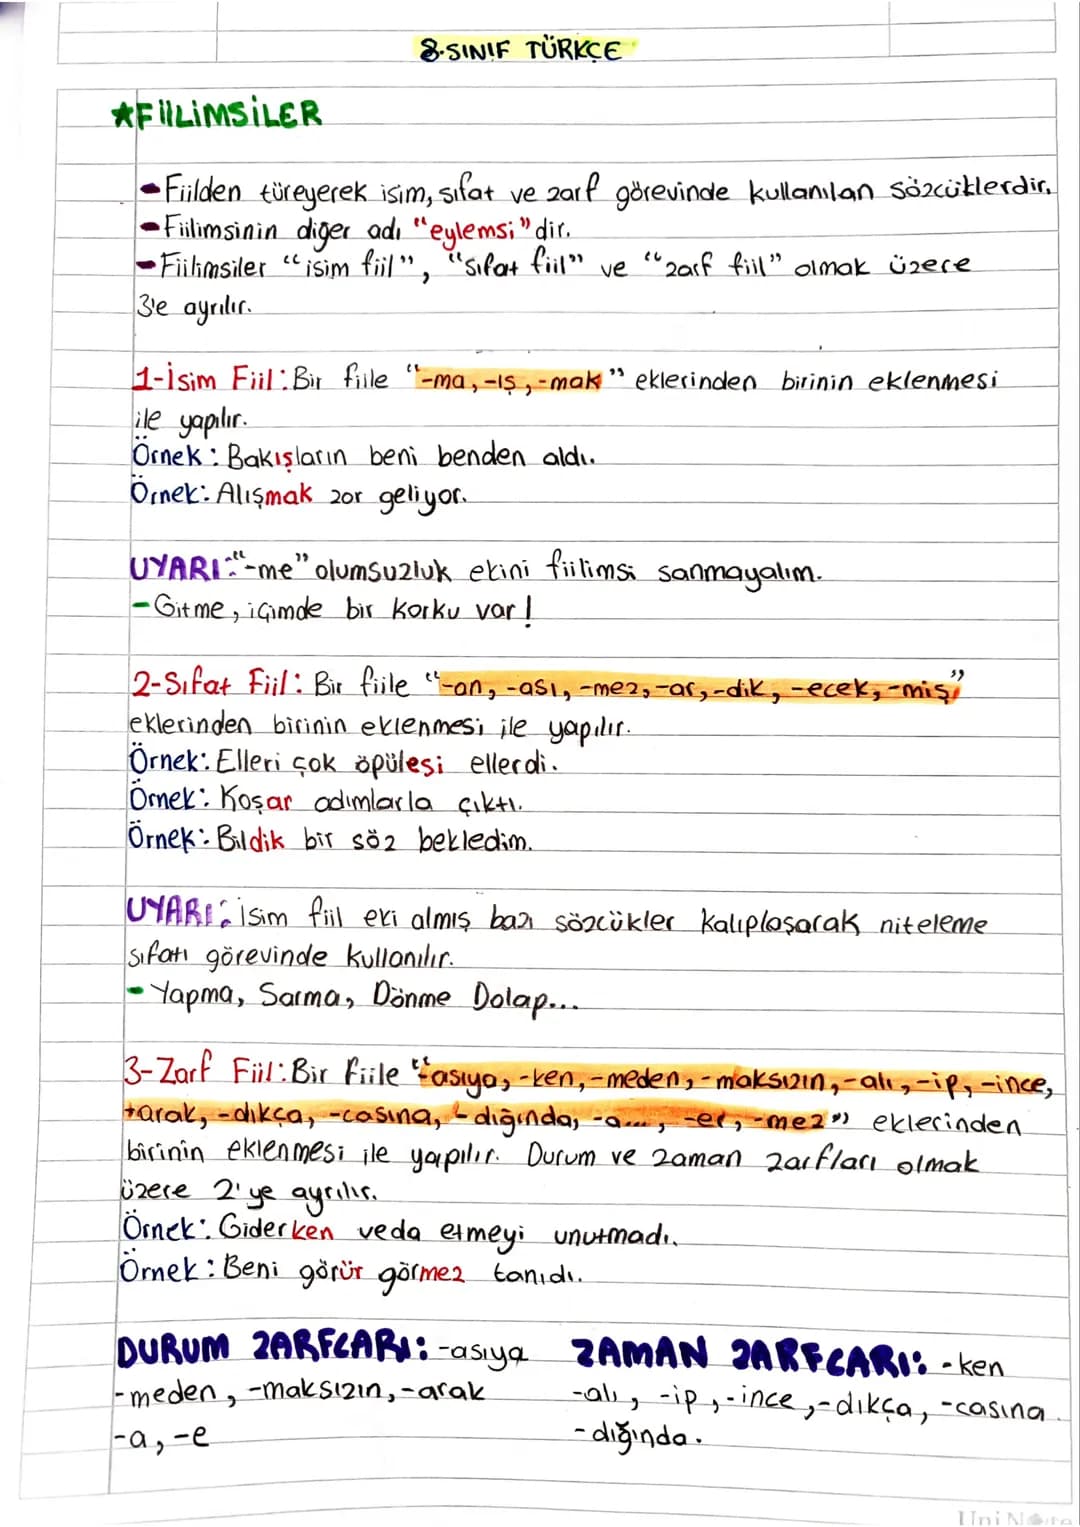 8.SINIF TÜRKÇE
★FİİLİMSİLER
- Fiilden türeyerek isim, sıfat ve zarf görevinde kullanılan sözcüklerdir.
- Fiilimsinin diğer adı "eylemsi" dir.
- Fiilimsiler "isim fiil", "sıfat fiil" ve "zarf fiil" olmak üzere
3'e ayrılır.
1-İsim Fiil: Bir fiile "-ma, -ış, -mak" eklerinden birinin eklenmesi
ile yapılır.
Örnek: Bakışların beni benden aldı.
Örnek: Alışmak zor geliyor.
UYARI: "-me" olumsuzluk ekini fiilimsi sanmayalım.
- Gitme, içimde bir korku var!
2-Sıfat Fiil: Bir fiile "-an, -ası, -mez, -ar, -dik, -ecek, -miş"
eklerinden birinin eklenmesi ile yapılır.
Örnek: Elleri çok öpülesi ellerdi.
Örnek: Koşar adımlarla çıktı.
Örnek: Bildik bir söz bekledim.
UYARI: İsim fiil eki almış bazı sözcükler kalıplaşarak niteleme
sıfatı görevinde kullanılır.
- Yapma, Sarma, Dönme Dolap...
3-Zarf Fiil: Bir fiile "-asıya, -ken, -meden, -maksızın, -alı, -ip, -ince,
-arak, -dıkça, -casına, -dığında, -a..., -er, -mez" eklerinden
birinin eklenmesi ile yapılır. Durum ve zaman zarfları olmak
üzere 2'ye ayrılır.
Örnek: Giderken veda etmeyi unutmadı.
Örnek: Beni görür görmez tanıdı.
DURUM ZARFLARI: -asıya
-meden, -maksızın, -arak
-a, -e
ZAMAN ZARFLARI: -ken
-alı, -ip, -ince, -dıkça, -casına
-dığında.
UniNote